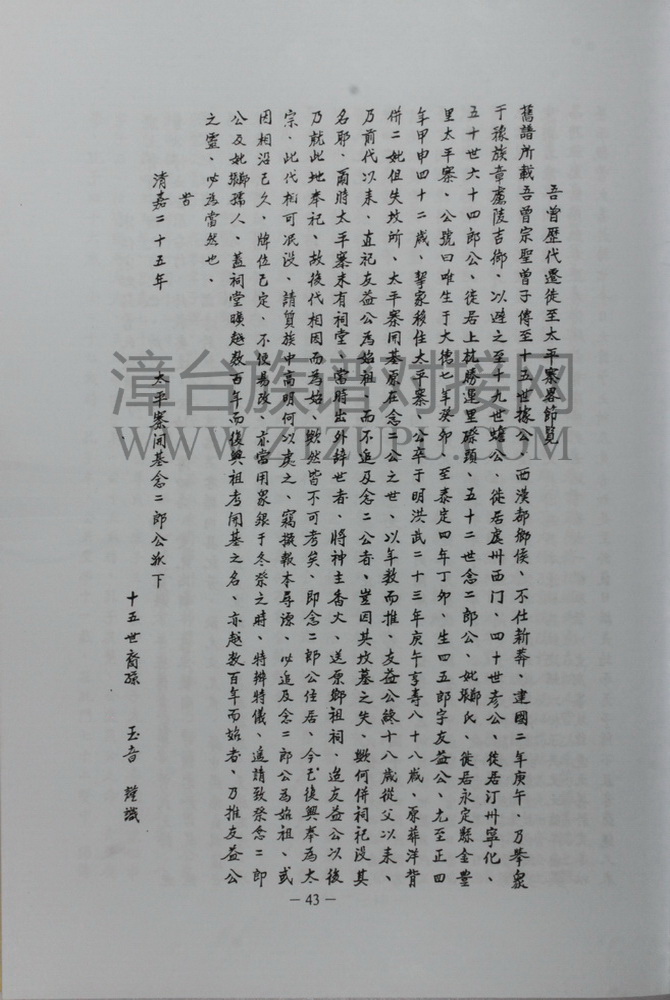 吾曾歷代遷徙至太平寨畧節覧
舊譜所載吾曾宗聖曾子傳至十五世據公、西漢都鄉侯、不仕新莽、建國二年庚午、乃挈眾
于豫族章盧陵吉鄉、以避之至十九世蟾公、徙居虔州西门、四十世彥公、徙居汀州寧化、
五十世六十四郎公、徙居上杭勝運里磜頭、五十二世念二郎公、妣鄒氏、徙居永定縣金豊
里太平寨、公號曰唯生于大德七年癸卯、至泰定四年丁卯、生四五郎字友益公、尤至正四
年甲申四十二歲、挈家移住太平寨、公卒于明洪武二十三年庚午享壽八十八歲、原葬洋背
併二妣但失坟所、太平寨闲基原在念二公之世、以年数而推、友益公條十八歲從父以来、
乃前代以来、直祀友益公為始祖、而不追及念二公者、豈因其坟墓之失、歟何併祠祀没其
名耶、爾時太平寨未有祠堂、當時出外辞世者、將神主香火、送原鄉祖祠、迨友益公以後
乃就此地奉祀、故後代相因而為始、歟然皆不可考矣、即念二郎公住居、今已復興奉為太
宗、此代相可泯没、請質族中高明何以處之、竊擬報本尋源、必追及念二郎公為始祖、或
因相沿已久、牌位已定、不便易改、亦當用眾銀于冬祭之時、特辦特儀、遙請致祭念二郎
公及妣鄒孺人、蓋祠堂曠越数百年而後興祖考闲基之名、亦越数百年而始者、乃推友益公
之靈、必為當然也、
旹
清嘉二十五年
太平寨闲基念二郎公派下
十五世裔孫 玉音 謹識
— 43 —
漳台族谱对接网
WWW.ZTZUPU.COM